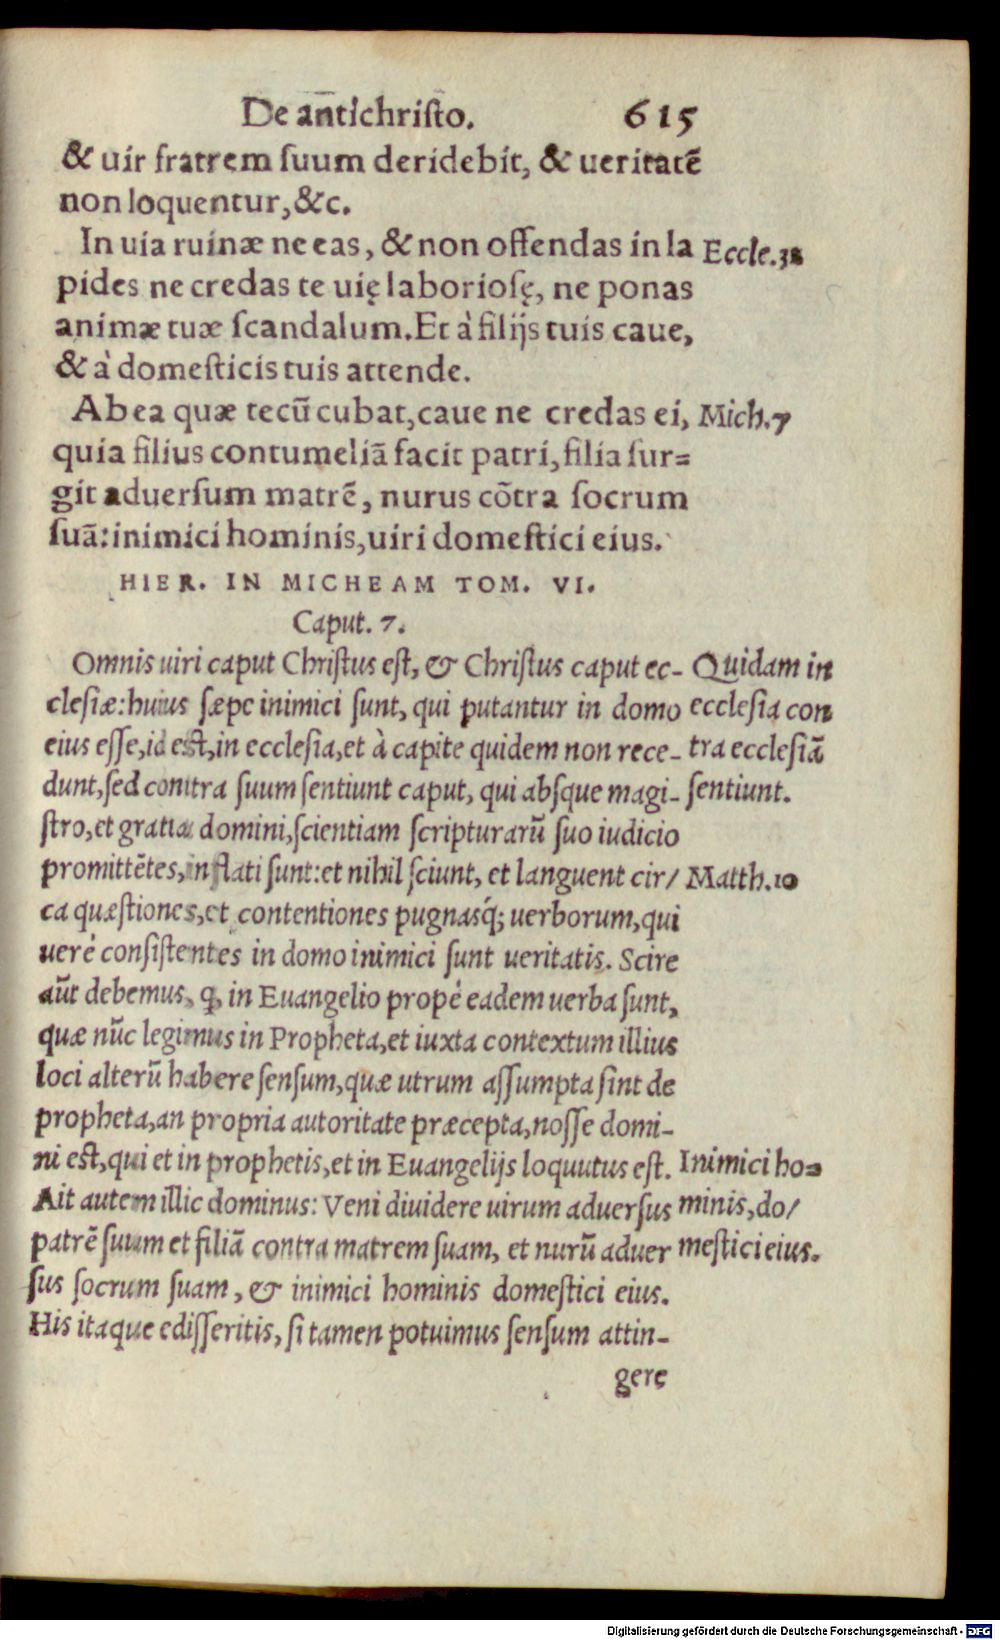 De antichristo. 615
& uir fratrem suum deridebit, & ueritatē
non loquentur, &c.
In uia ruinæ ne eas, & non offendas in la
pides ne credas te uię laboriosę, ne ponas
animæ tuæ scandalum. Et à filijs tuis caue,
& à domesticis tuis attende.
Ab ea quæ tecū cubat, caue ne credas ei,
quia filius contumeliā facit patri, filia sur=
git aduersum matrē, nurus cōtra socrum
suā: inimici hominis, uiri domestici eius.
HIER. IN MICHEAM TOM. VI.
Caput. 7.
Omnis uiri caput Christus est, & Christus caput ec-
clesiæ: huius sæpe inimici sunt, qui putantur in domo
eius esse, id est, in ecclesia, et à capite quidem non rece-
dunt, sed contra suum sentiunt caput, qui absque magi-
stro, et gratia domini, scientiam scripturarū suo iudicio
promittētes, inflati sunt: et nihil sciunt, et languent cir/
ca quæstiones, et contentiones pugnasq́; uerborum, qui
uerè consistentes in domo inimici sunt ueritatis. Scire
aūt debemus, ꝙ in Euangelio propè eadem uerba sunt,
quæ nūc legimus in Propheta, et iuxta contextum illius
loci alterū habere sensum, quæ utrum assumpta sint de
propheta, an propria autoritate præcepta, nosse domi-
ni est, qui et in prophetis, et in Euangelijs loquutus est.
Ait autem illic dominus: Veni diuidere uirum aduersus
patrē suum et filiā contra matrem suam, et nurū aduer
sus socrum suam, & inimici hominis domestici eius.
His itaque edisseritis, si tamen potuimus sensum attin-
gere
Eccle.32
Mich.7
Quidam in
ecclesia con
tra ecclesiā
sentiunt.
Matth.10
Inimici ho=
minis, do/
mestici eius.
Digitalisierung gefördert durch die Deutsche Forschungsgemeinschaft - DFG